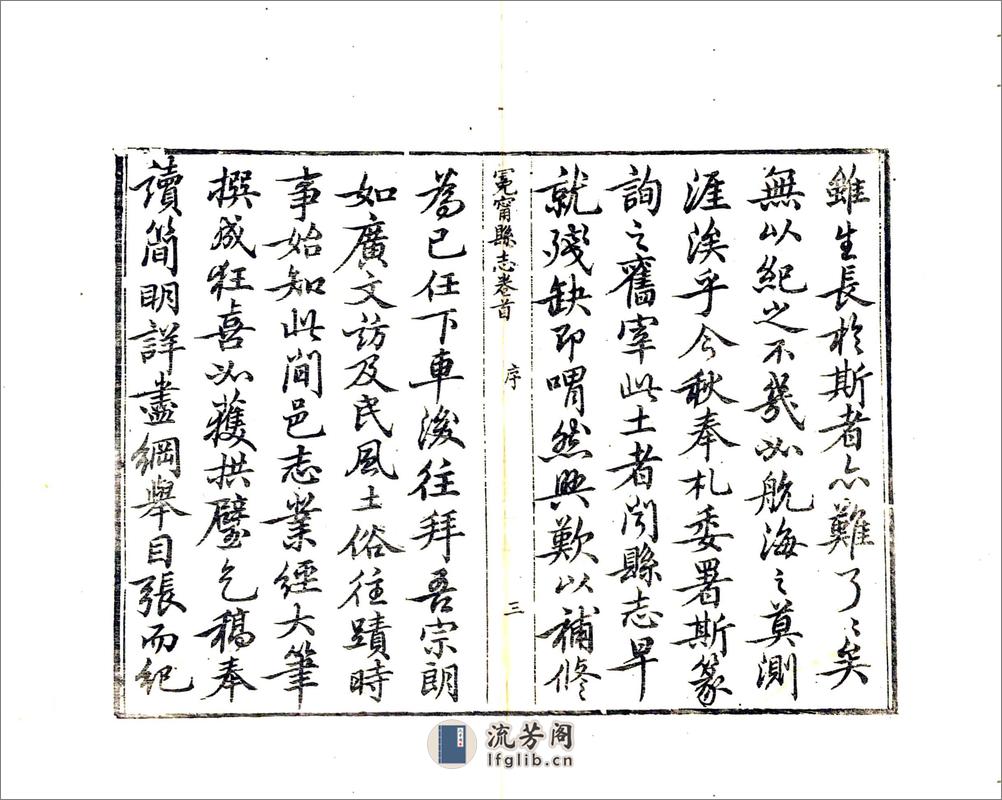 雖生長於斯者亦難了〻矣
無以紀之不幾如航海之莫測
涯涘乎今秋奉札委署斯篆
詢之舊宰此土者聞縣志早
就殘缺即喟然興歎以補修
冕甯縣志卷首 序 三
為己任下車後往拜吾宗朗
如廣文訪及民風土俗往蹟時
事始知此間邑志業經大筆
撰成狂喜如獲拱璧乞稿奉
讀簡明詳盡綱舉目張而紀
流芳阁
lfglib.cn